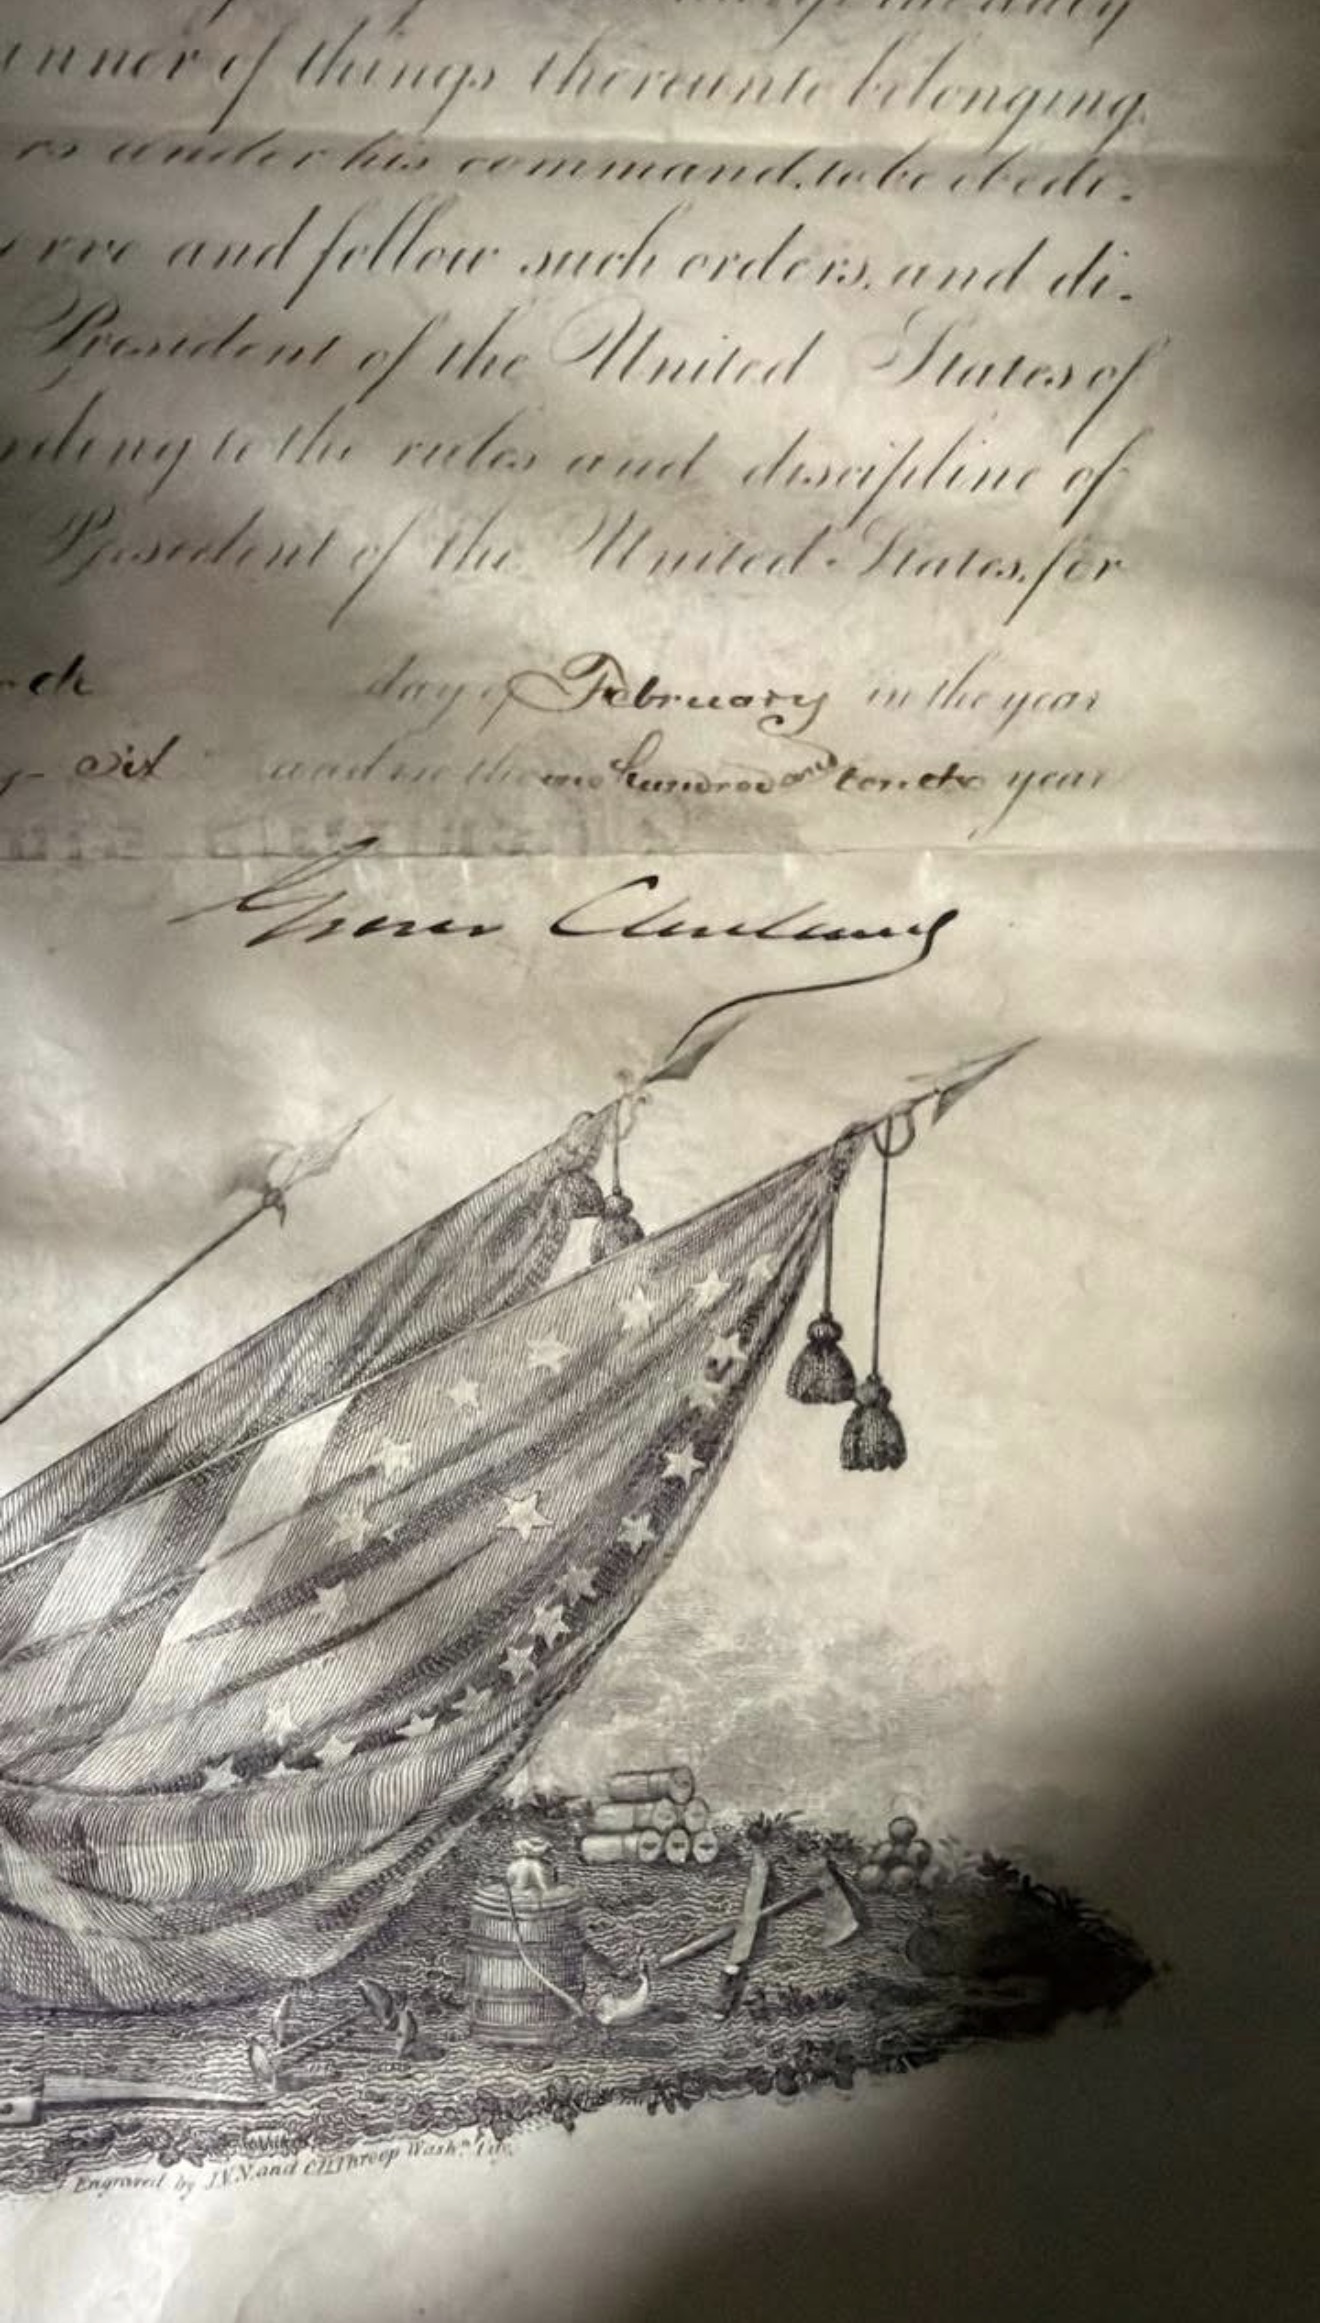 nner of things thereunto belonging.
rs under his command, to be obedi-
erve and follow such orders, and di-
President of the United States of
rding to the rules and discipline of
President of the United States, for
day of February in the year
y-six and in the one hundred and tenth year
Grover Cleveland
Engraved by J.V.N. and O.H. Throop Washn. City.